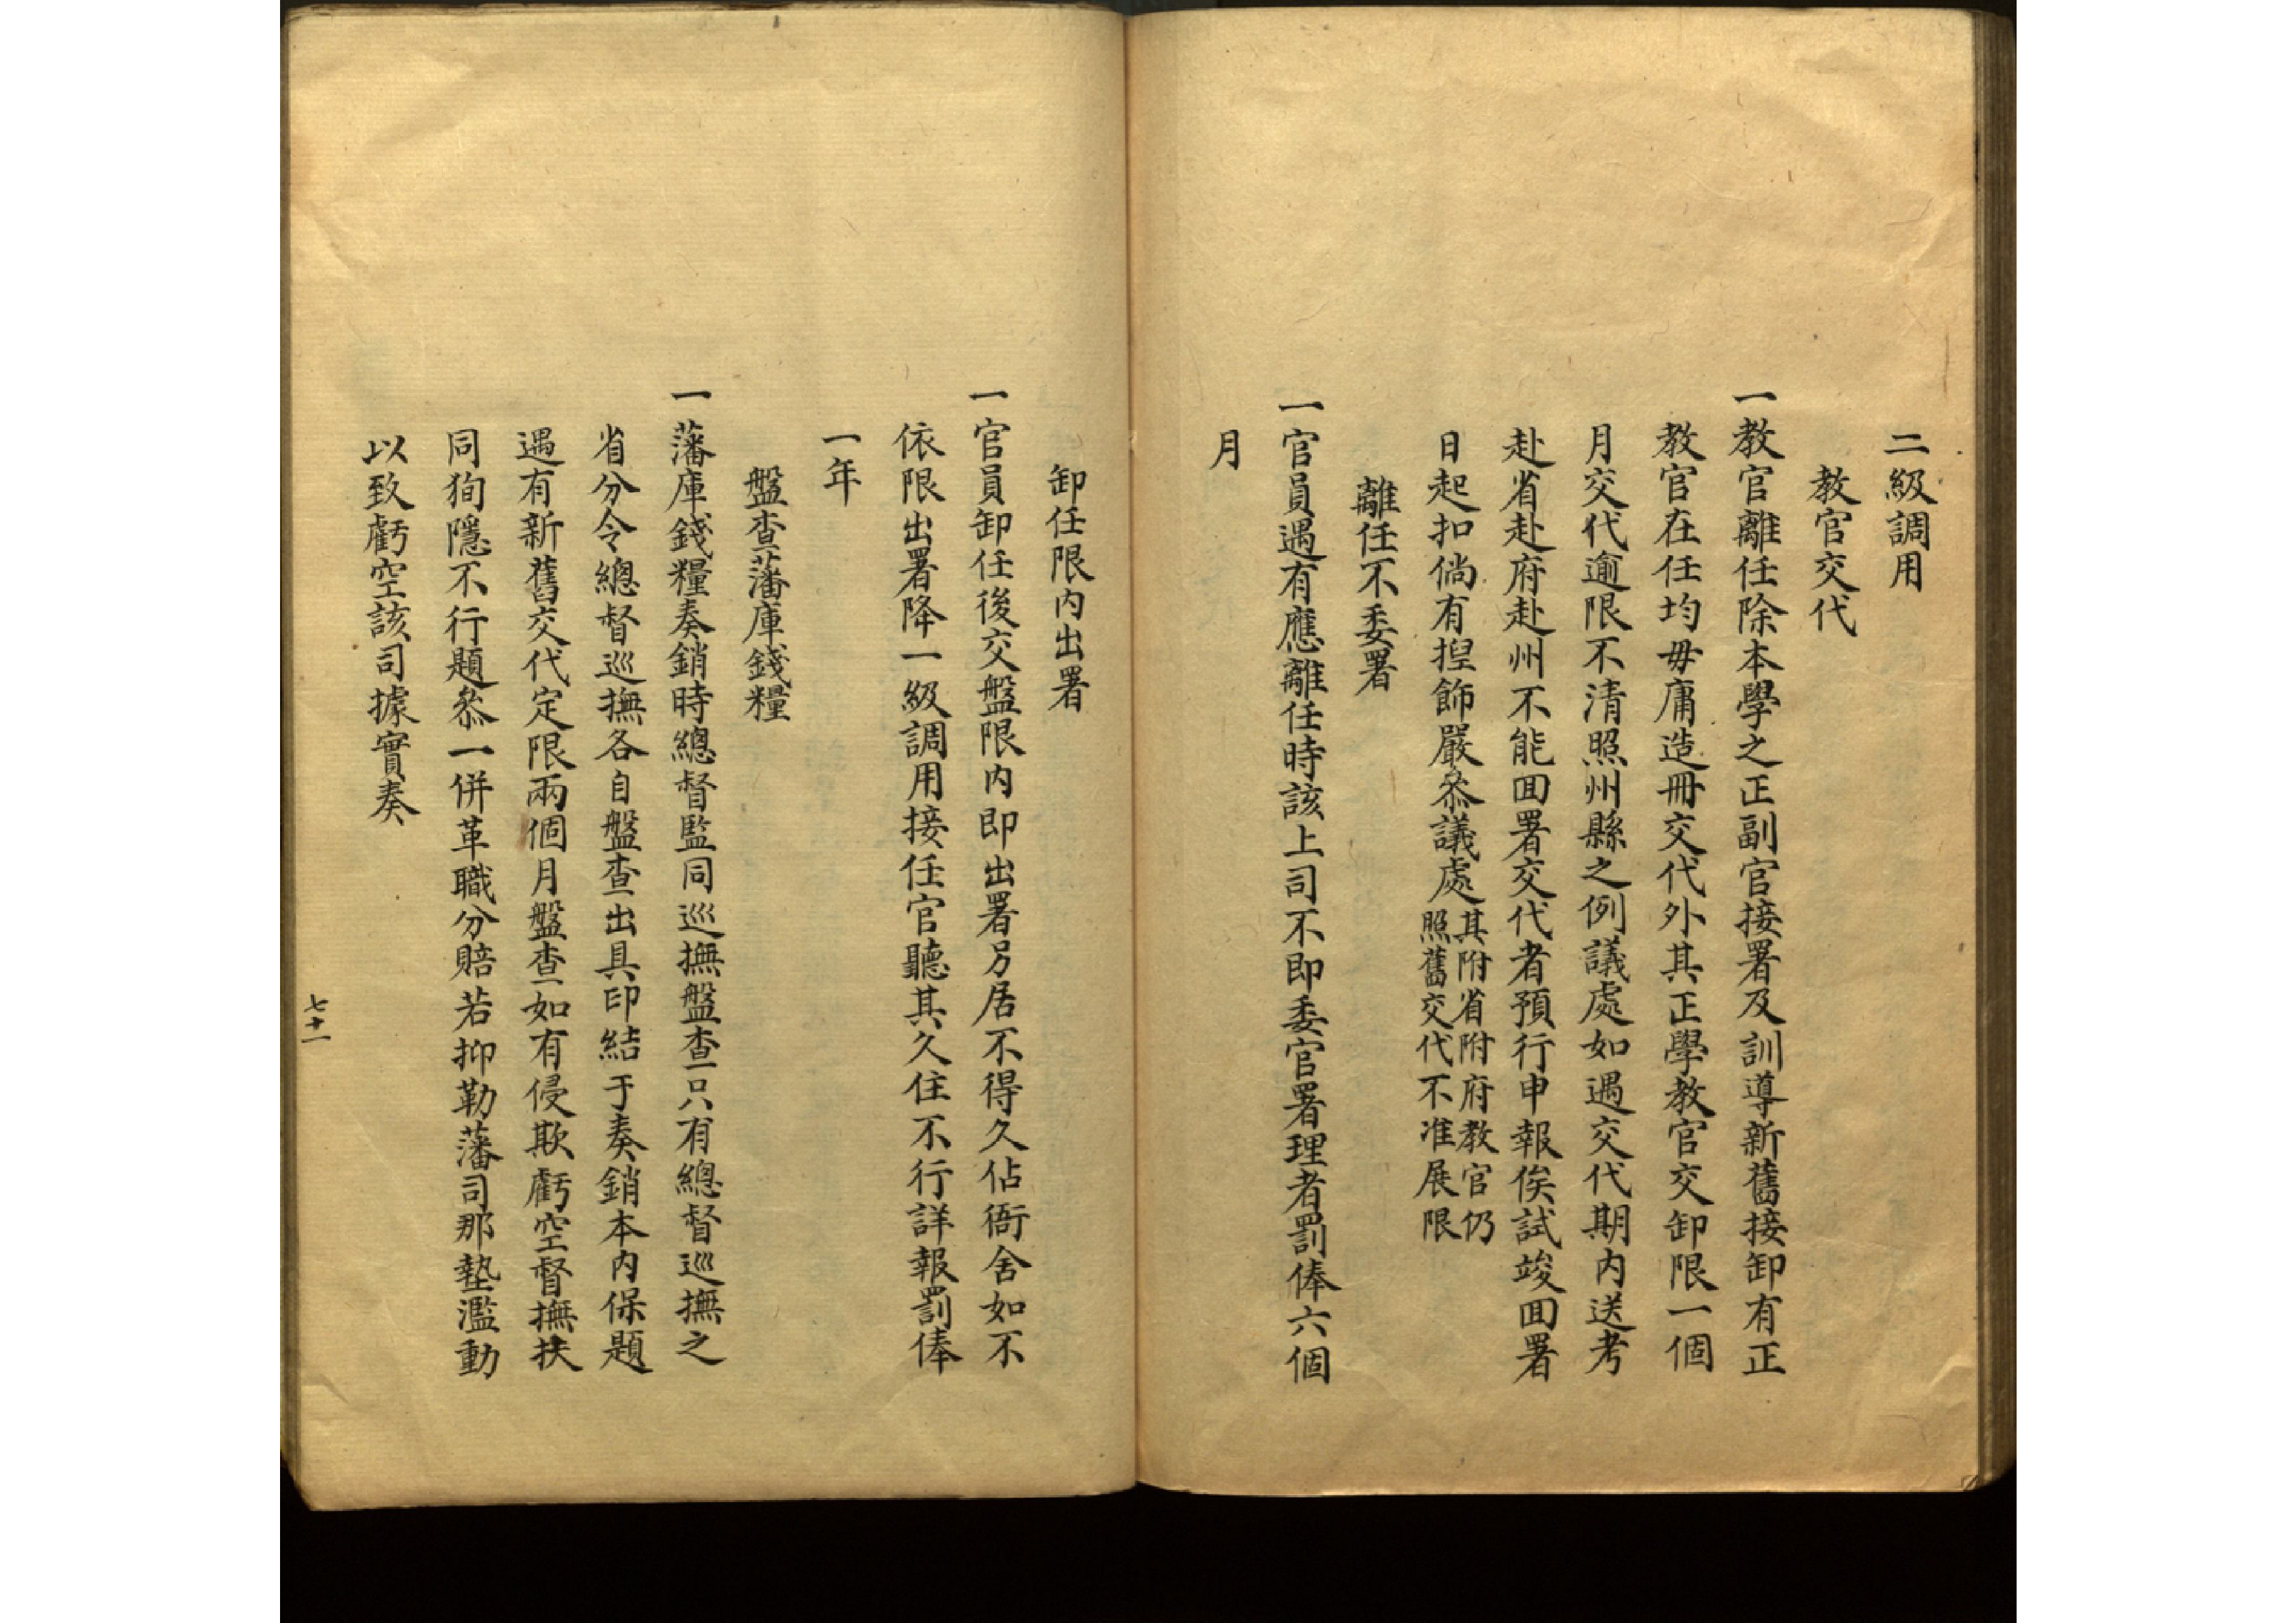 二級調用
教官交代
一教官離任除本學之正副官接署及訓導新舊接卸有正
教官在任均毋庸造冊交代外其正學教官交卸限一個
月交代逾限不清照州縣之例議處如遇交代期内送考
赴省赴府赴州不能囬署交代者預行申報俟試竣囬署
日起扣倘有揑飾嚴叅議處其附省附府教官仍
照舊交代不准展限
離任不委署
一官員遇有應離任時該上司不即委官署理者罰俸六個
月
卸任限内出署
一官員卸任後交盤限内即出署另居不得久佔衙舍如不
依限出署降一級調用接任官聽其久住不行詳報罰俸
一年
盤查藩庫錢糧
一藩庫錢糧奏銷時總督監同巡撫盤查只有總督巡撫之
省分令總督巡撫各自盤查出具印結于奏銷本内保題
遇有新舊交代定限兩個月盤查如有侵欺虧空督撫扶
同狥隱不行題叅一併革職分賠若抑勒藩司那墊濫動
以致虧空該司據實奏
七十一